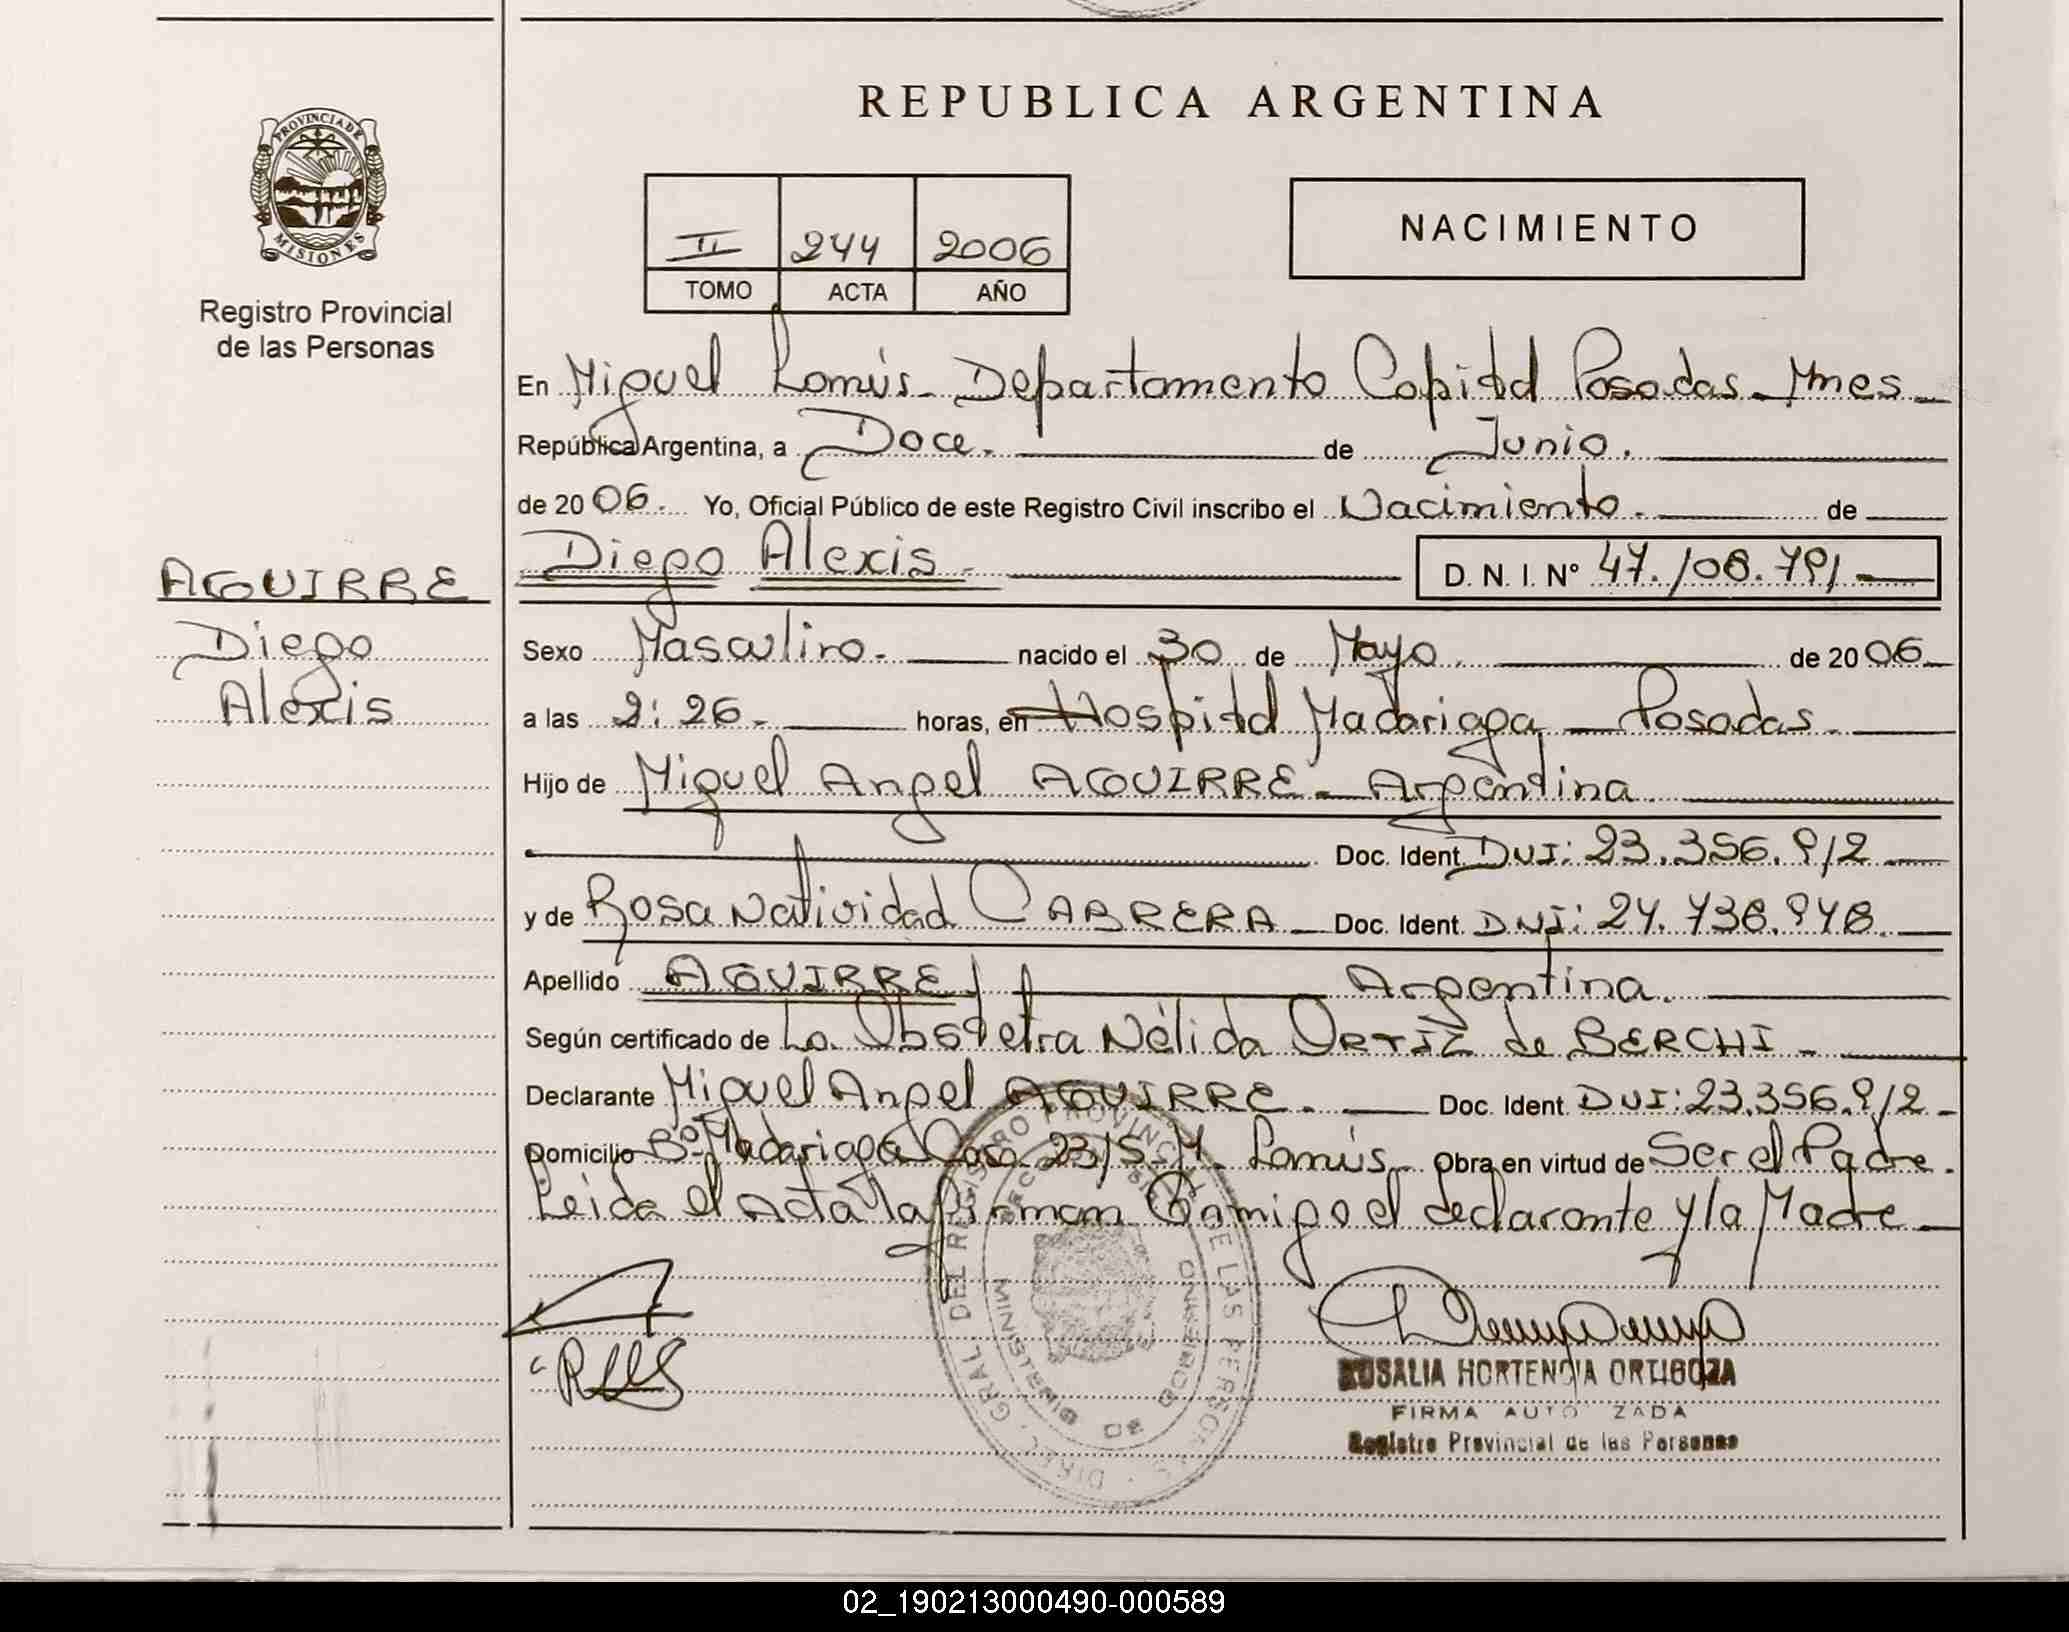 REPUBLICA ARGENTINA
PROVINCIA DE
MISIONES
Registro Provincial
de las Personas
II 244 2006
TOMO ACTA AÑO
NACIMIENTO
En Miguel Lanús - Departamento Capital Posadas - Mnes -
República Argentina, a Doce. de Junio.
de 2006. Yo, Oficial Público de este Registro Civil inscribo el Nacimiento. de
Diego Alexis - D. N. I. Nº 47.108.791
AGUIRRE
Diego
Alexis
Sexo Masculino. nacido el 30 de Mayo. de 2006
a las 2:26 - horas, en Hospital Madariaga - Posadas.
Hijo de Miguel Angel AGUIRRE - Argentina.
Doc. Ident. DNI: 23.356.912
y de Rosa Natividad CABRERA - Doc. Ident. DNI: 24.738.948.
Apellido AGUIRRE Argentina.
Según certificado de La Obstetra Nélida ORTIZ de BERCHI -
Declarante Miguel Angel AGUIRRE. Doc. Ident. DNI: 23.356.912 -
Domicilio Bº Madariaga Casa 23/5 - M. Lanús - Obra en virtud de Ser el Padre.
Leida el Acta la firman Conmigo el declarante y la Madre
DIREC. GRAL DEL REGISTRO PROVINCIAL DE LAS PERSONAS
MINISTERIO DE GOBIERNO
ROSALIA HORTENCIA ORTIGOZA
FIRMA AUTORIZADA
Registro Provincial de las Personas
02_190213000490-000589